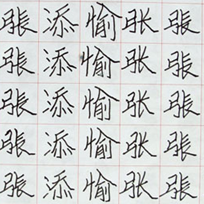 張添愉张張
張添愉张張
張添愉张張
張添愉张張
張添愉张張